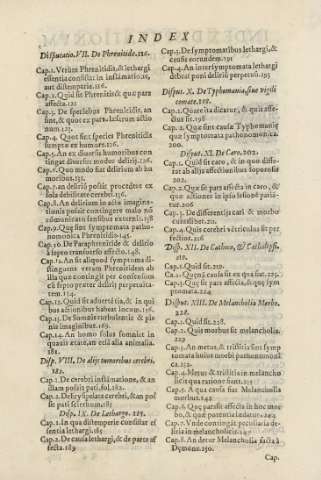 INDEX
Disputatio. VII. De Phrenitide. 121.
Cap.1. Veritas Phrenitidis, & lethargi
essentia consistat in inflamatio
aut distemperie. 116.
Cap.2. Quid sit Phrenitis & quæ pars
affecta. 121
Cap.3. De speciebus Phrenitidis, an
sint, & quot ex parte læsarum actio
num. 123.
Cap.4. Quot sint species Phrenitidis
sumptæ ex humore. 126.
Cap.5. An ex diversis humoribus con
tingat diversus modus delirij. 126.
Cap.6. Quo modo fiat delirium ab hu
moribus. 131.
Cap.7. an delirio possit procedere ex
sola debilitate cerebri. 136.
Cap.8. An delirium in actu imagina-
tionis possit contingere malo nõ
cõmunicato sensibus externis. 138
Cap.9. Quæ sint symptomata patho-
nomonica Phrenitidis. 145.
Cap.10. De Paraphrenitide & delirio
à septo transverso affecto. 148.
Cap.11. An sit aliquod symptoma di
stinguens veram Phrenitidem ab
illa quæ contingit per consensum
cũ propter delirij perpetuita-
tem. 154.
Cap.12. Quid sit & in qui
bus actionibus habeat locum. 156.
Cap.13. De somniis turbulentis & pra
vis imaginibus. 163.
Cap.14. An homo solus somniet in
quavis ætate, an etiã alia animalia.
181.
Disp. VIII. De alijs tumoribus cerebri.
182.
Cap.1. De cerebri inflamatione, & an
illam possit pati. 182.
Cap.2. De erysipelate cerebri, & an pos
sit pati scirrhum. 185
Disp. IX. De Lethargo. 185.
Cap.1. In qua distemperie consistat es
sentia lethargi. 185
Cap.2. De causa lethargi, & de parte af
fecta. 189
Cap.3. De symptomatibus lethargi, &
causis eorundem. 191
Cap.4. An inter symptomata lethargi
debeat poni delirium perpetuo. 193
Disput. X. De Typhomania, sive vigili
comate. 198.
Cap.1. Quare ita dicatur, & quis affe-
ctus sit. 198
Cap.2. Quæ sint causæ Typhomaniæ
quæ symptomata pathonomonica
200.
Disput. XI. De Caro. 202.
Cap.1. Quid sit caro, & in quo diffe-
rat ab aliis affectionibus soporosis
202.
Cap.2. Quæ sit pars affecta in caro, &
quæ actiones in ipso læsione patiã
tur. 206
Cap.3. De differentijs cari & morbo
faciente. 212.
Cap.4. Quis cerebri vẽtriculus sit per
fectior. 216
Disp. XII. De Catocho, & Catalepsi.
219.
Cap.1. Quid sit. 219.
Ca.2. Quẽnã causa sit ex qua fiat. 223.
Cap.3. Quæ sit pars affecta, & quæ sym
ptomata. 224
Disput. XIII. De Melancholia Morbo.
228.
Cap.1. Quid sit. 228.
Cap.2. Quis morbus sit melancholia.
229
Cap.3. An metus, & tristitia sint symp
tomata huius morbi pathonomoni
ca. 232.
Cap.4. Metus & tristitia in melancho
licis qua ratione fiant. 235
Cap.5. A qua causa fiat Melancholia
morbus. 242
Cap.6. Quæ pars sit affecta in hoc mor
bo, & quæ potentia lædatur. 247.
Cap.7. Unde contingat peculiaria de-
liria in melancholicis. 247.
Cap.8. An detur Melancholia facta à
Dæmone. 250.
Cap.